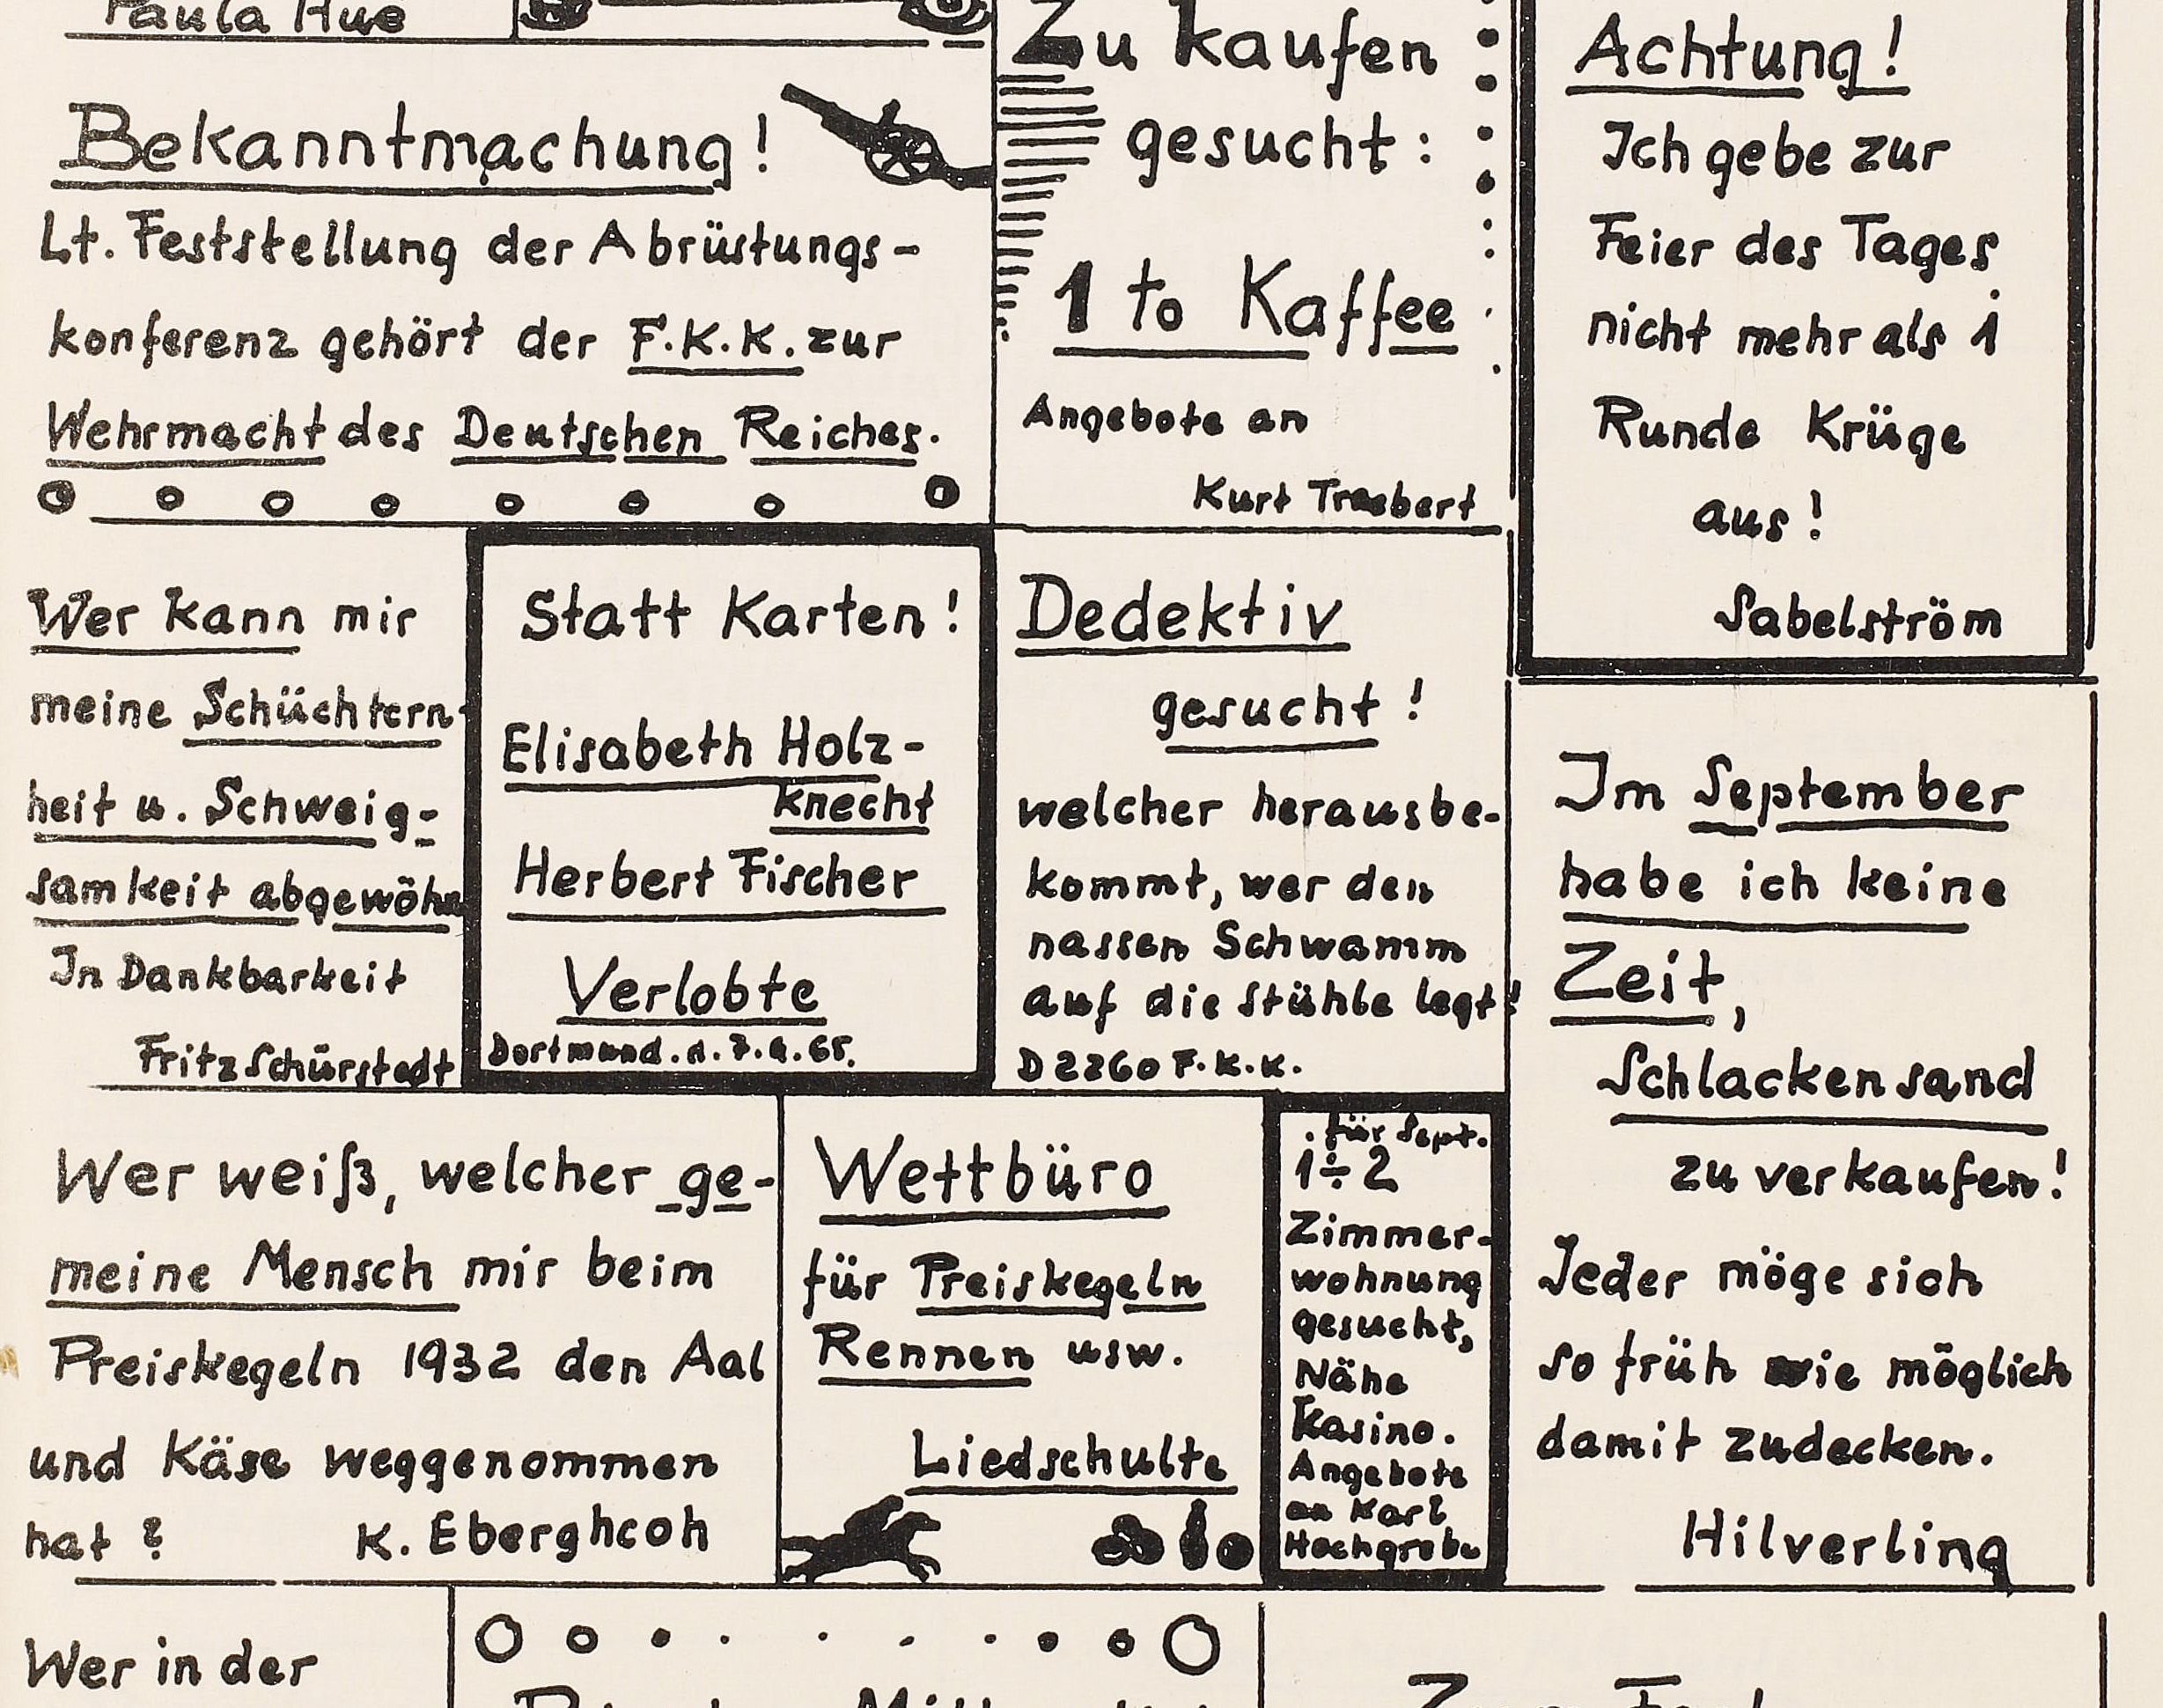 Paula Hue
Bekanntmachung!
Lt. Feststellung der Abrüstungs-
konferenz gehört der F.K.K. zur
Wehrmacht des Deutschen Reiches.
Zu kaufen
gesucht:
1 to Kaffee
Angebote an
Kurt Traebert
Achtung!
Ich gebe zur
Feier des Tages
nicht mehr als 1
Runde Krüge
aus!
Sabelström
Wer kann mir
meine Schüchtern-
heit u. Schweig-
samkeit abgewöhn
In Dankbarkeit
Fritz Schürstedt
Statt Karten!
Elisabeth Holz-
knecht
Herbert Fischer
Verlobte
Dortmund. d. 7.9.65.
Dedektiv
gesucht!
welcher herausbe-
kommt, wer den
nassen Schwamm
auf die Stühle legt!
D 2260 F.K.K.
Im September
habe ich keine
Zeit,
Schlackensand
zu verkaufen!
Jeder möge sich
so früh wie möglich
damit zudecken.
Hilverling
Wer weiß, welcher ge-
meine Mensch mir beim
Preiskegeln 1932 den Aal
und Käse weggenommen
hat?
K. Eberghcoh
Wettbüro
für Preiskegeln
Rennen usw.
Liedschulte
für Sept.
1÷2
Zimmer-
wohnung
gesucht,
Nähe
Kasino.
Angebote
an Karl
Hochgrebe
Wer in der